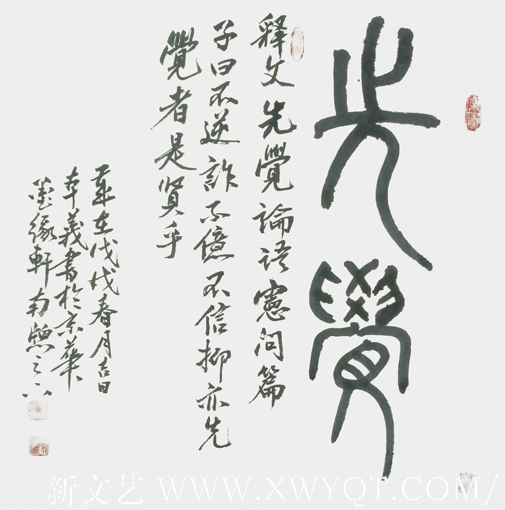 先覺
释文先覺論语憲问篇
子曰不逆詐不億不信抑亦先
覺者是賢乎
歲在戊戌春月吉日
本義書於京華
墨緣軒南窗之下
新文艺 WWW.XWYQT.COM/